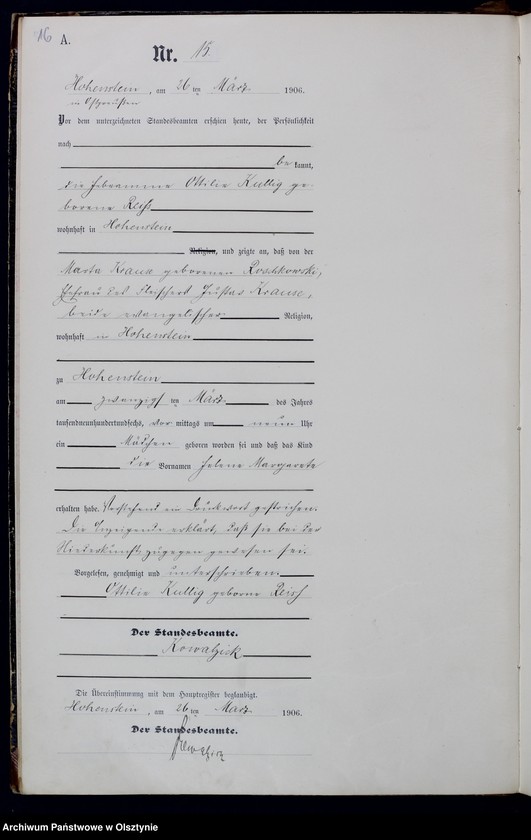 16
A.
Nr. 15
Hohenstein, am 26 ten März 1906.
in Ostpreußen
Vor dem unterzeichneten Standesbeamten erschien heute, der Persönlichkeit
nach
be kannt,
die Hebramme Ottilie Kullig ge-
borene Reiß
wohnhaft in Hohenstein
Religion, und zeigte an, daß von der
Marta Krause geborenen Roschkowski,
Ehefrau des Fleischers Gustav Krause,
beide evangelischer Religion,
wohnhaft in Hohenstein
zu Hohenstein
am zwanzigsten März des Jahres
tausendneunhundertundsechs, vor mittags um neun Uhr
ein Mädchen geboren worden sei und daß das Kind
die Vornamen Helene Margarete
erhalten habe. Vorstehend ein Druckwort gestrichen.
Die Anzeigende erklärt, daß sie bei der
Niederkunft zugegen gewesen sei.
Vorgelesen, genehmigt und unterschrieben.
Ottilie Kullig geborne Reiß
Der Standesbeamte.
Kowalzick
Die Übereinstimmung mit dem Hauptregister beglaubigt.
Hohenstein, am 26 ten März 1906.
Der Standesbeamte.
Kowalzick
Archiwum Państwowe w Olsztynie